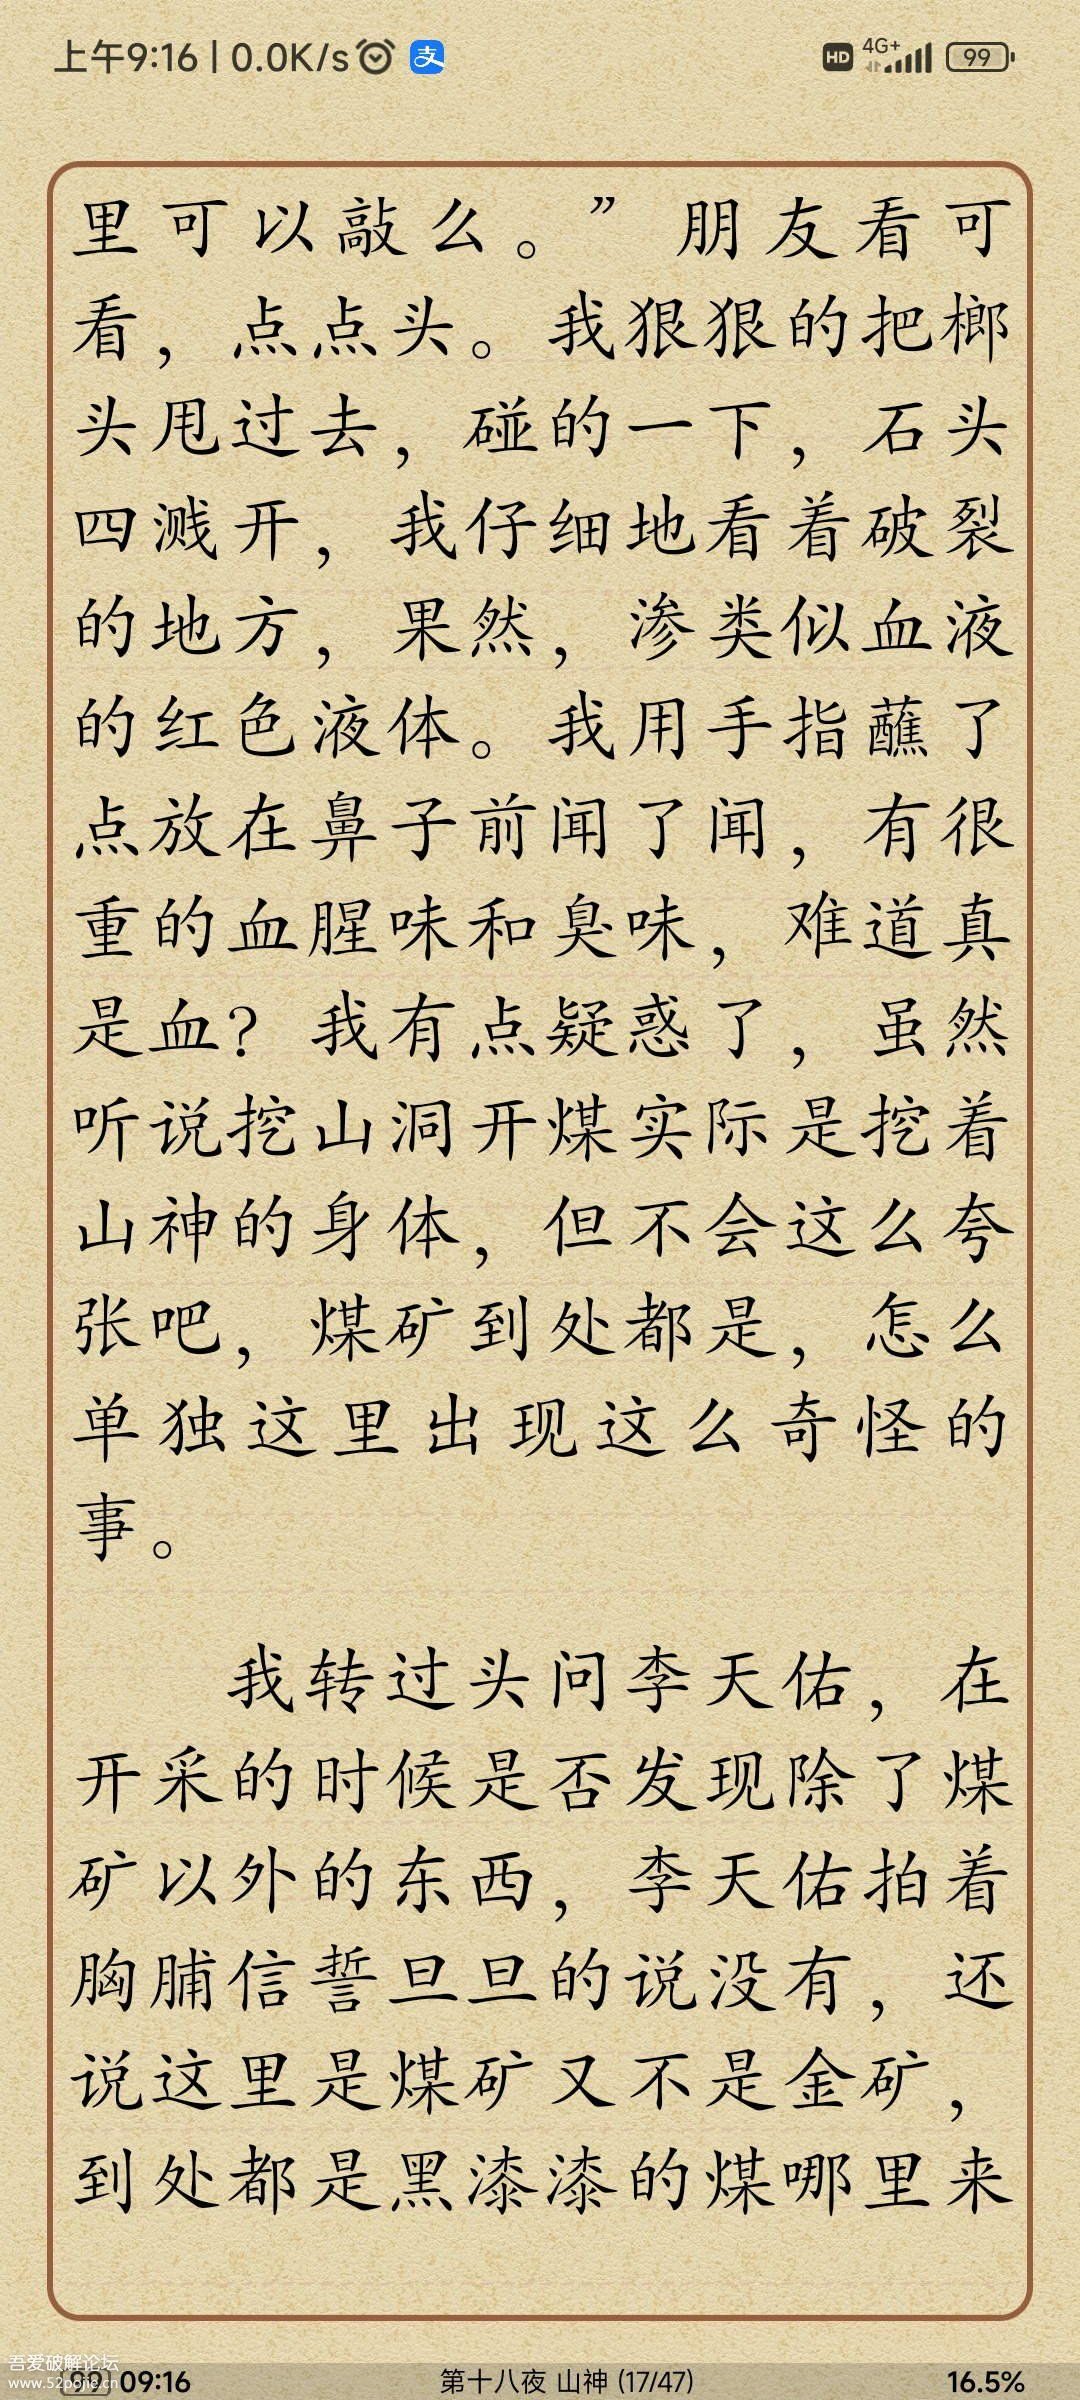 上午9:16 | 0.0K/s 支 HD 4G+ 99
里可以敲么。” 朋友看可
看，点点头。我狠狠的把榔
头甩过去，碰的一下，石头
四溅开，我仔细地看着破裂
的地方，果然，渗类似血液
的红色液体。我用手指蘸了
点放在鼻子前闻了闻，有很
重的血腥味和臭味，难道真
是血？我有点疑惑了，虽然
听说挖山洞开煤实际是挖着
山神的身体，但不会这么夸
张吧，煤矿到处都是，怎么
单独这里出现这么奇怪的
事。
我转过头问李天佑，在
开采的时候是否发现除了煤
矿以外的东西，李天佑拍着
胸脯信誓旦旦的说没有，还
说这里是煤矿又不是金矿，
到处都是黑漆漆的煤哪里来
吾爱破解论坛
www.52pojie.cn
99 09:16 第十八夜 山神 (17/47) 16.5%